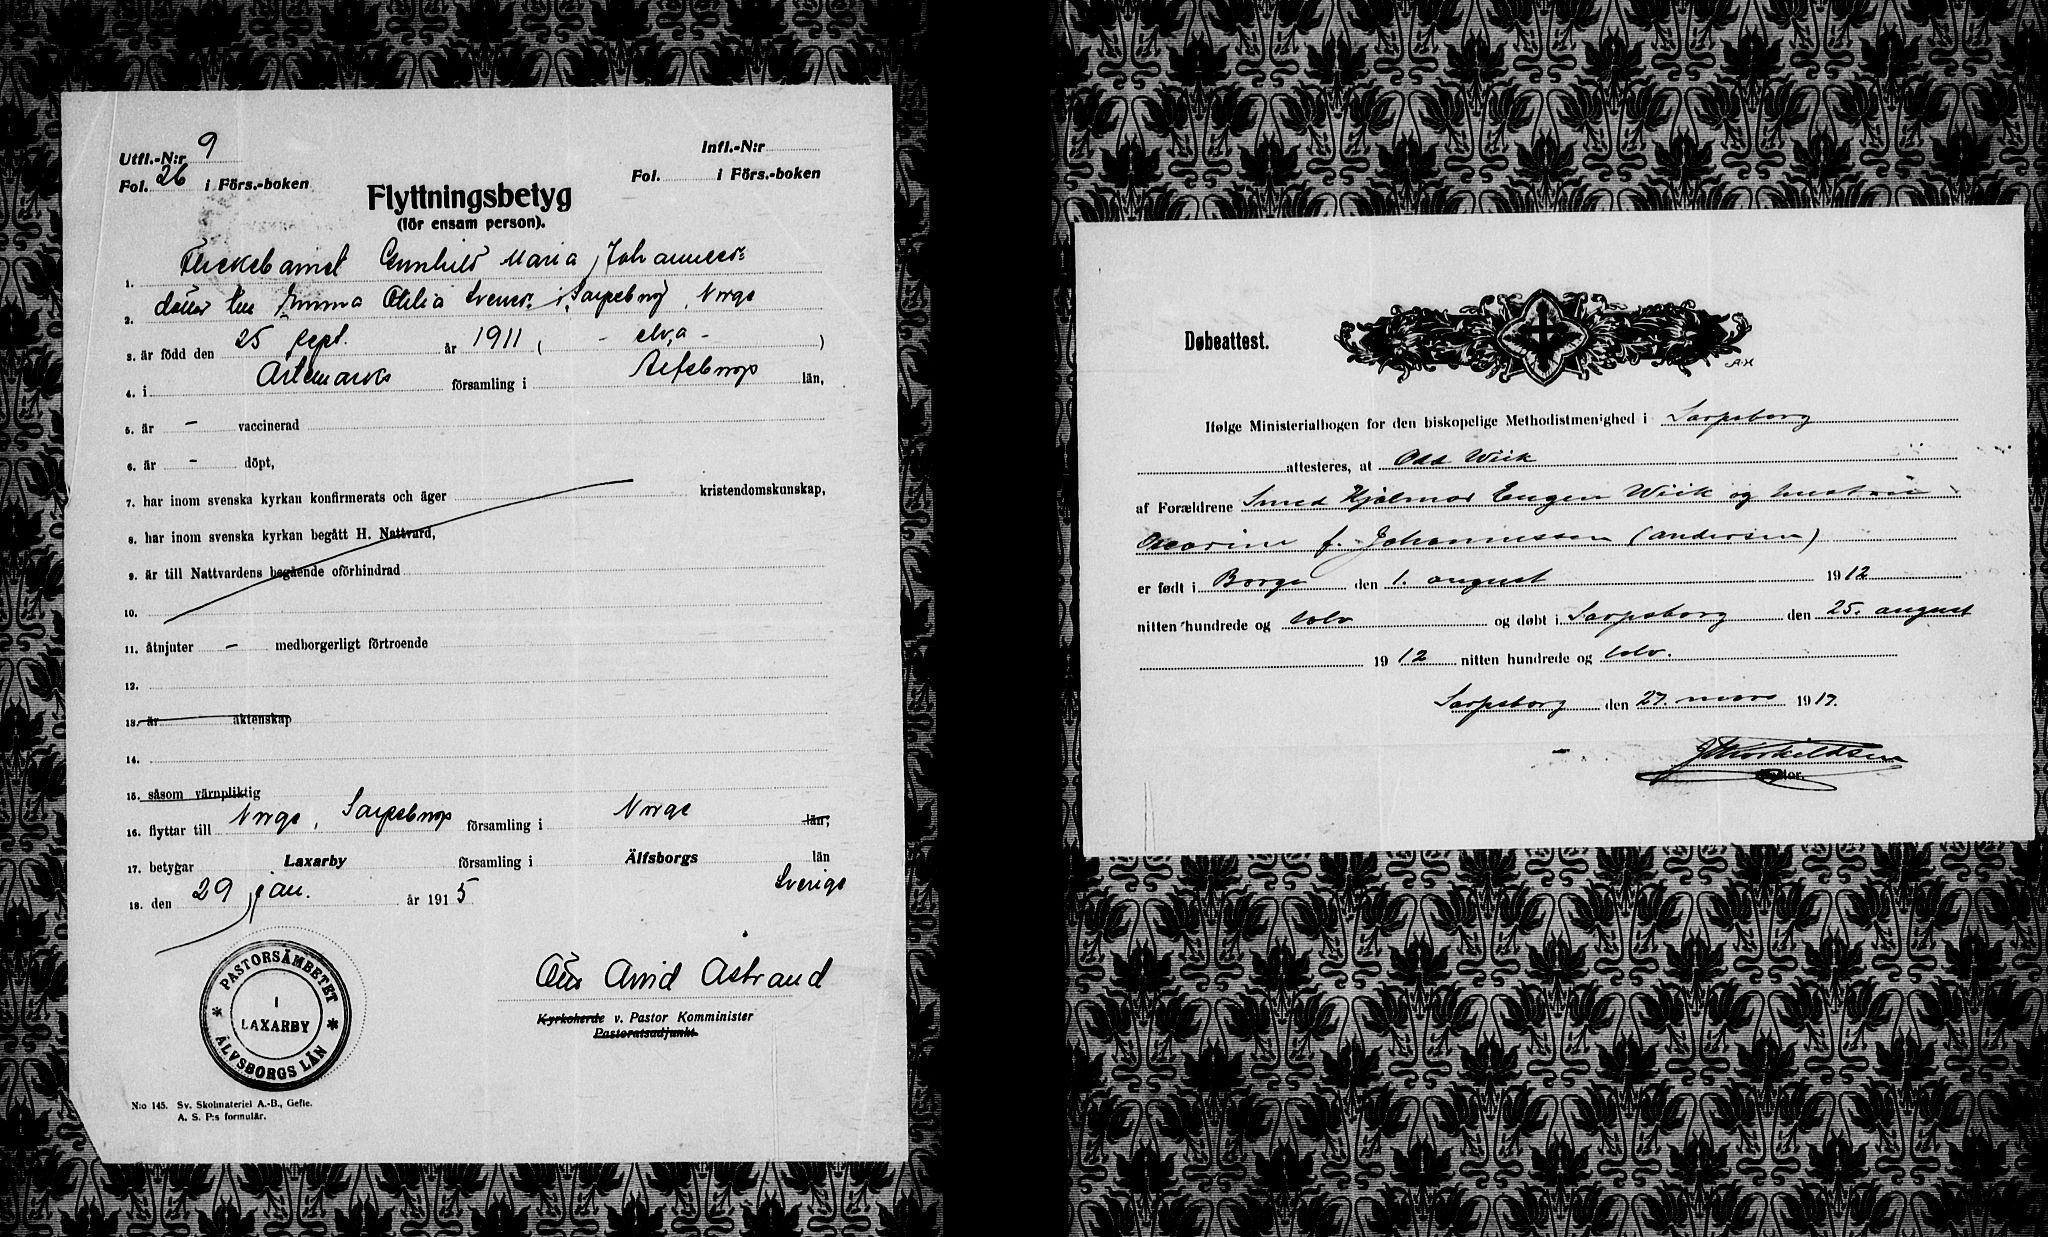 Utfl.-N:r 9
Fol. 26 i Förs.-boken
Infl.-N:r
Fol. i Förs.-boken
Flyttningsbetyg
(för ensam person).
1. Flickebarnet Gunhild Maria Johannes-
2. dotter till Emma Otilia Svens. i Sarpsborg, Norge
3. är född den 25 sept. år 1911 ( - elva - )
4. i Ärtemarks församling i Aelfsborgs län,
5. är - vaccinerad
6. är - döpt,
7. har inom svenska kyrkan konfirmerats och äger kristendomskunskap,
8. har inom svenska kyrkan begått H. Nattvard,
9. är till Nattvardens begående oförhindrad
10.
11. åtnjuter - medborgerligt förtroende
12.
13. är äktenskap
14.
15. såsom värnpliktig
16. flyttar till Norge, Sarpsborg församling i Norge län,
17. betygar Laxarby församling i Älfsborgs län
18. den 29 jan. år 1915 Sverige
PASTORSÄMBETET I LAXARBY ÄLVSBORGS LÄN
Arvid Åstrand
Kyrkoherde v. Pastor Komminister
Pastoratsadjunkt.
N:o 145. Sv. Skolmateriel A.-B., Gefle.
A. S. P:s formulär.
Døbeattest.
A·H
Ifølge Ministerialbogen for den biskopelige Methodistmenighed i Sarpsborg
attesteres, at Odd Wiik
af Forældrene Smed Hjalmar Eugen Wiik og hustru
Oscarine f. Johannessen (Andersen)
er født i Borge den 1. august 1912
nitten hundrede og tolv og døbt i Sarpsborg den 25. august
1912 nitten hundrede og tolv.
Sarpsborg den 27. mars 1917.
Pastor.